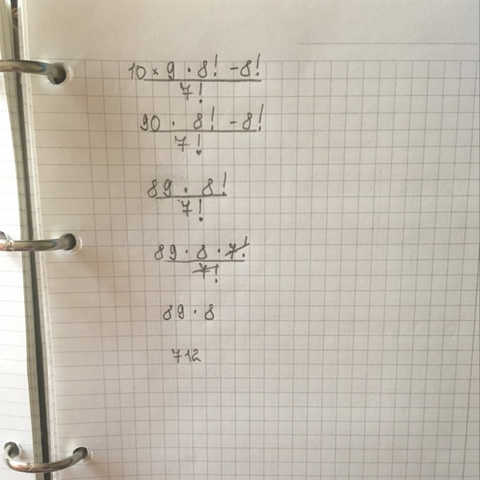 10 × 9 · 8! - 8!
7!
90 · 8! - 8!
7!
89 · 8!
7!
89 · 8 · 7!
7!
89 · 8
712